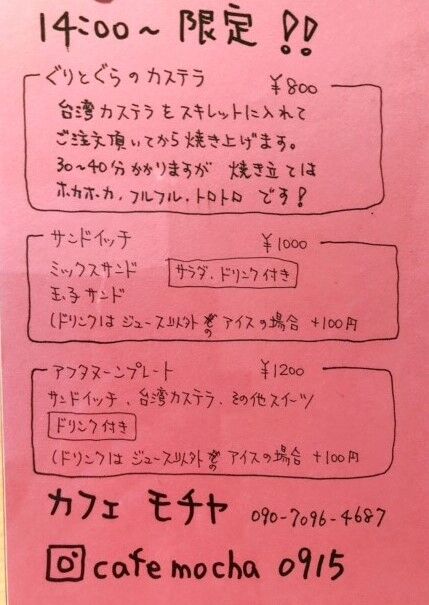 14:00〜 限定!!
ぐりとぐらのカステラ ¥800
台湾カステラをスキレットに入れて
ご注文頂いてから焼き上げます。
30〜40分かかりますが 焼き立ては
ホカホーカ、フルフル、トロトロ です!
サンドイッチ ¥1000
ミックスサンド サラダ、ドリンク付き
玉子サンド
(ドリンクは ジュース以外の アイスの場合 +100円
アフタヌーンプレート ¥1200
サンドイッチ、台湾カステラ、その他スイーツ
ドリンク付き
(ドリンクは ジュース以外の アイスの場合 +100円
カフェ モチャ 090-7096-4687
cafe mocha 0915